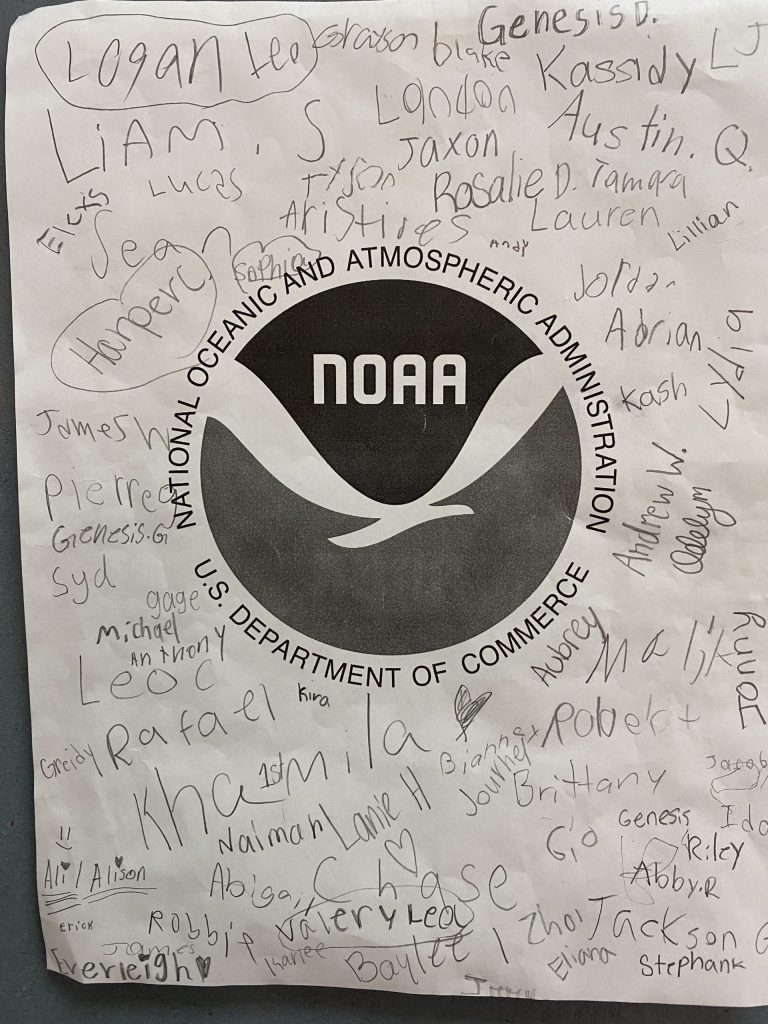 Genesis D.
Logan Leo Grayson Blake Kassidy LJ
London
LiAM. S Jaxon Austin. Q.
Lucas Tyson Rosalie D. Tamara
Aristires Lauren Lillian
Sean Sophia Andy
Harper C Jordan
Adrian Lydia
NATIONAL OCEANIC AND ATMOSPHERIC ADMINISTRATION
NOAA
U.S. DEPARTMENT OF COMMERCE
Kash
James W
Pierre
Genesis.G Andrew W.
Syd
gage
Michael
Anthony Aubrey Malik
Leo C Kira
Rafael Robert
Greidy Mila
1st Journey Brittany Jacob
Kha
Naiman Lanie H Gio Genesis
Riley
Ali/Alison Abigail Chase Abby.R
Erick Robbie Valery Leo Zhoi Jackson
James Karlee Baylee Eliana Stephank
Everleigh